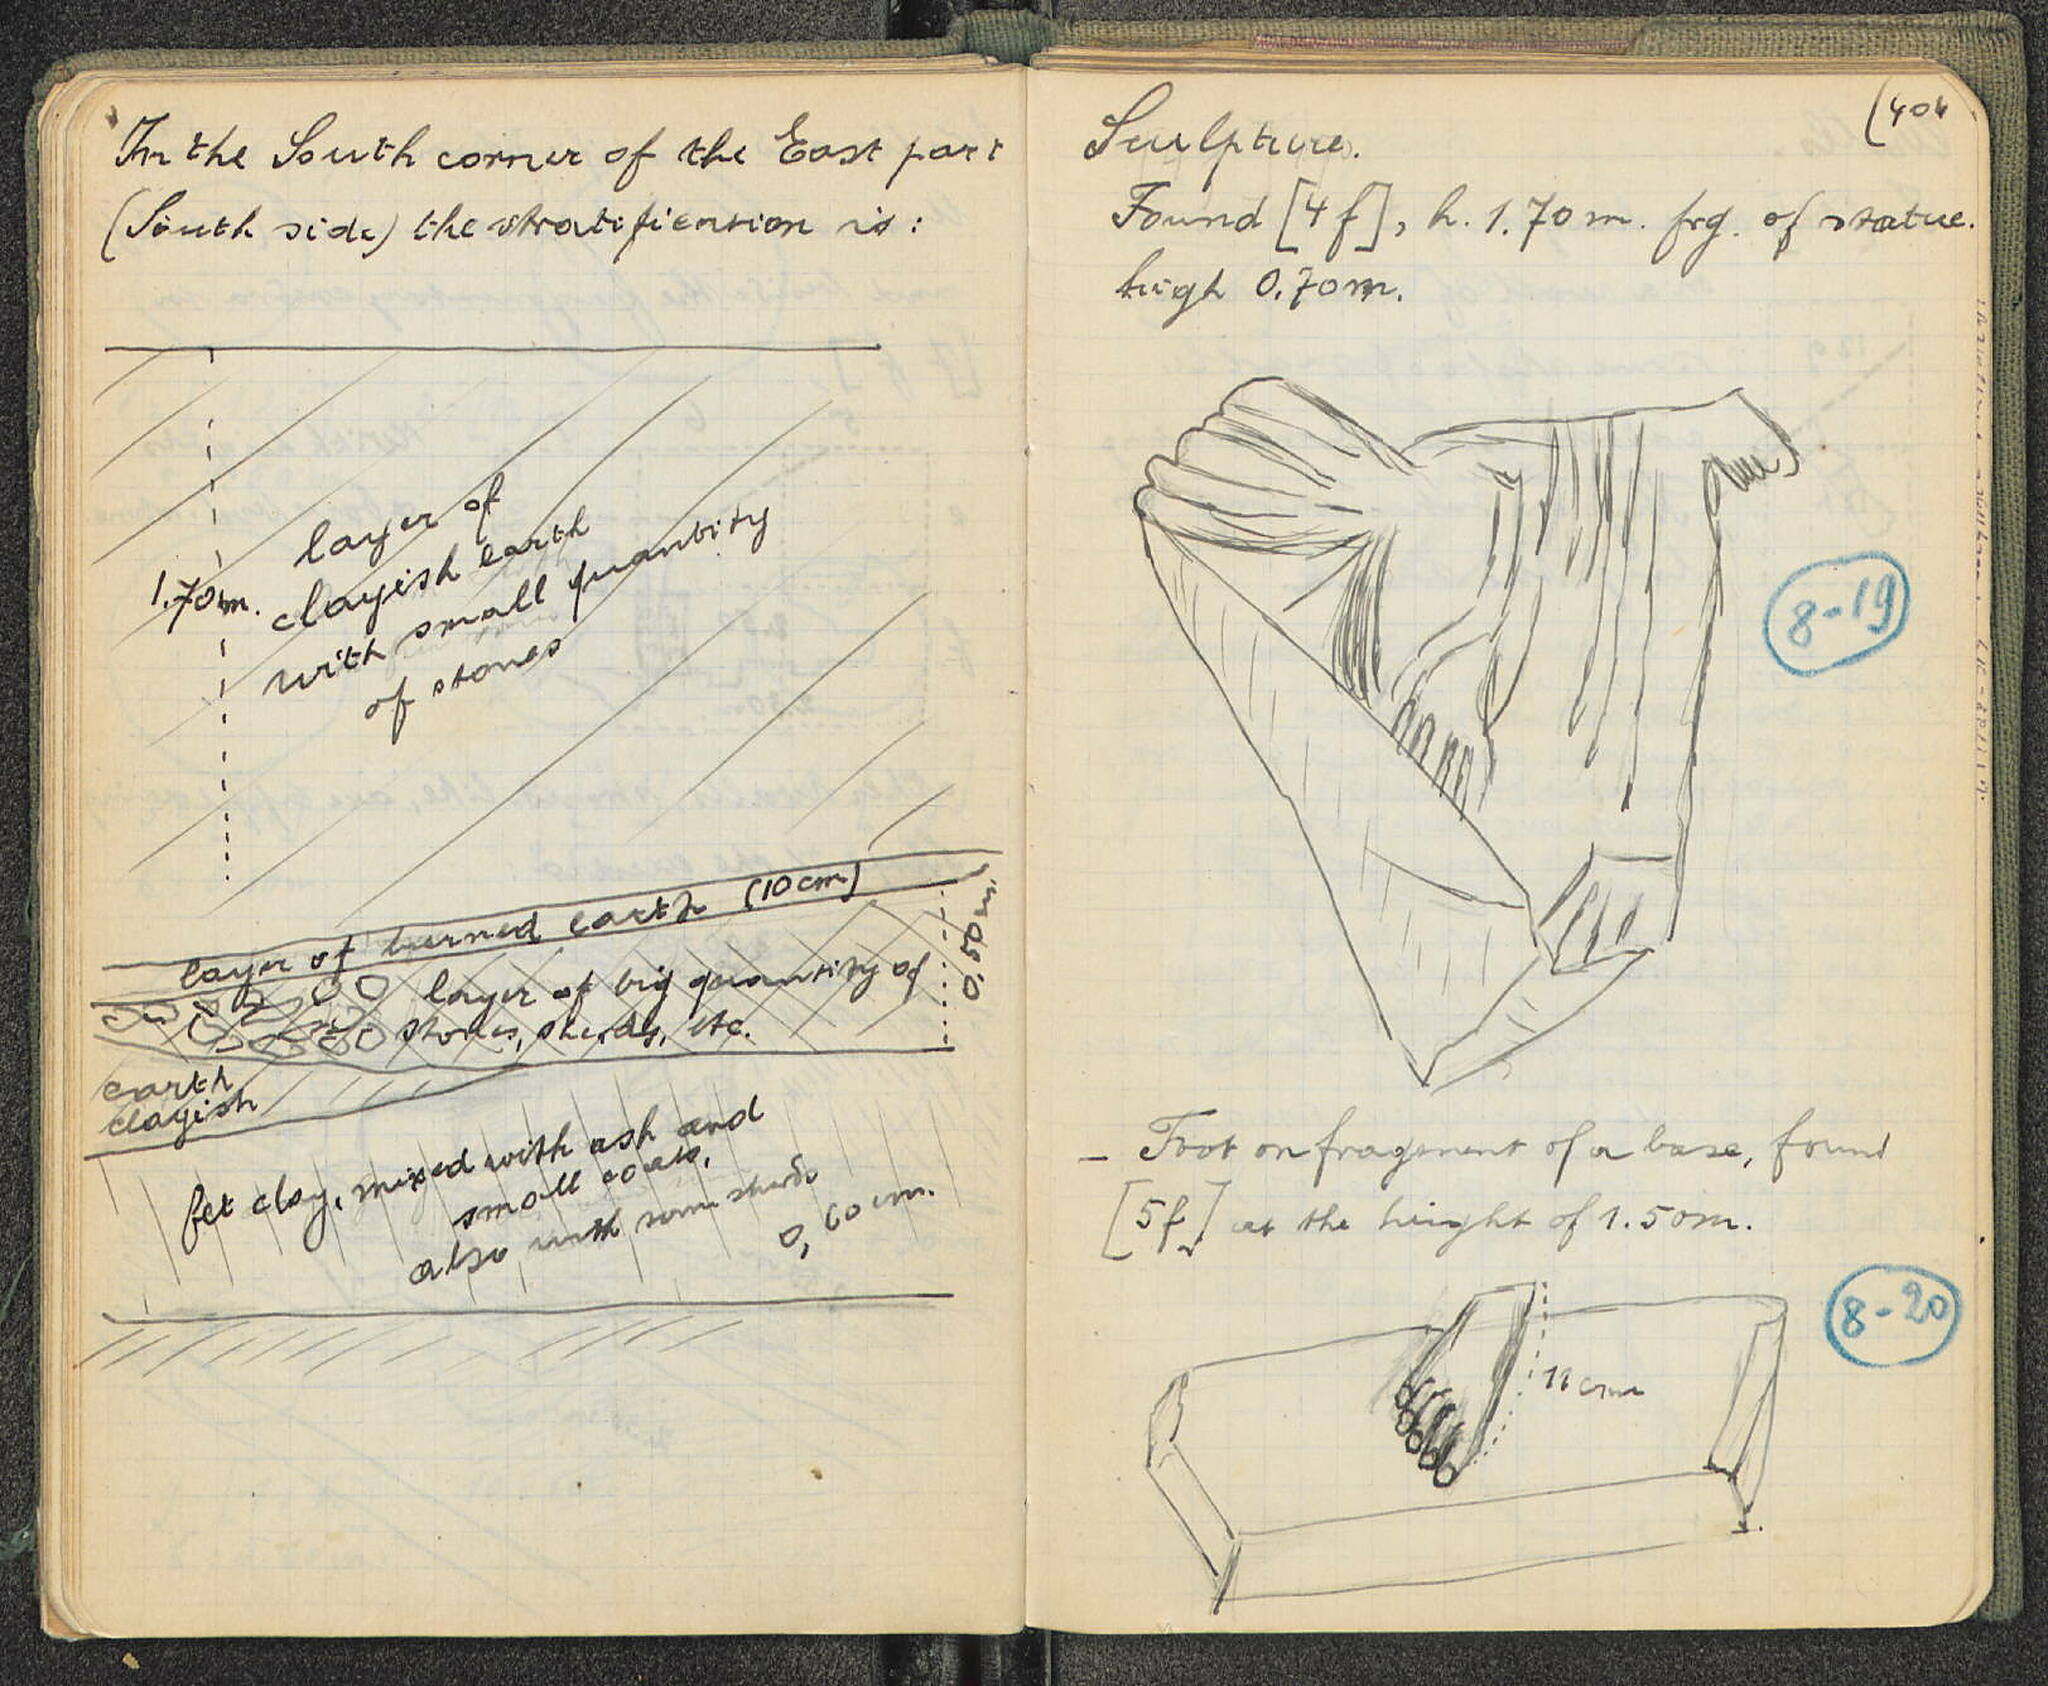 In the South corner of the East part
(South side) the stratification is:
layer of
clayish earth
with small quantity
of stones
1.70m.
layer of burned earth (10cm)
layer of big quantity of
stones, sherds, etc.
0.50m.
earth
clayish
fet clay, mixed with ash and
small coals,
also with some sherds
0,60cm.
(404
Sculpture.
Found [4f], h. 1.70m. frg. of statue.
high 0.70m.
8-19
- Foot on fragment of a base, found
[5f] at the height of 1.50m.
8-20
11cm